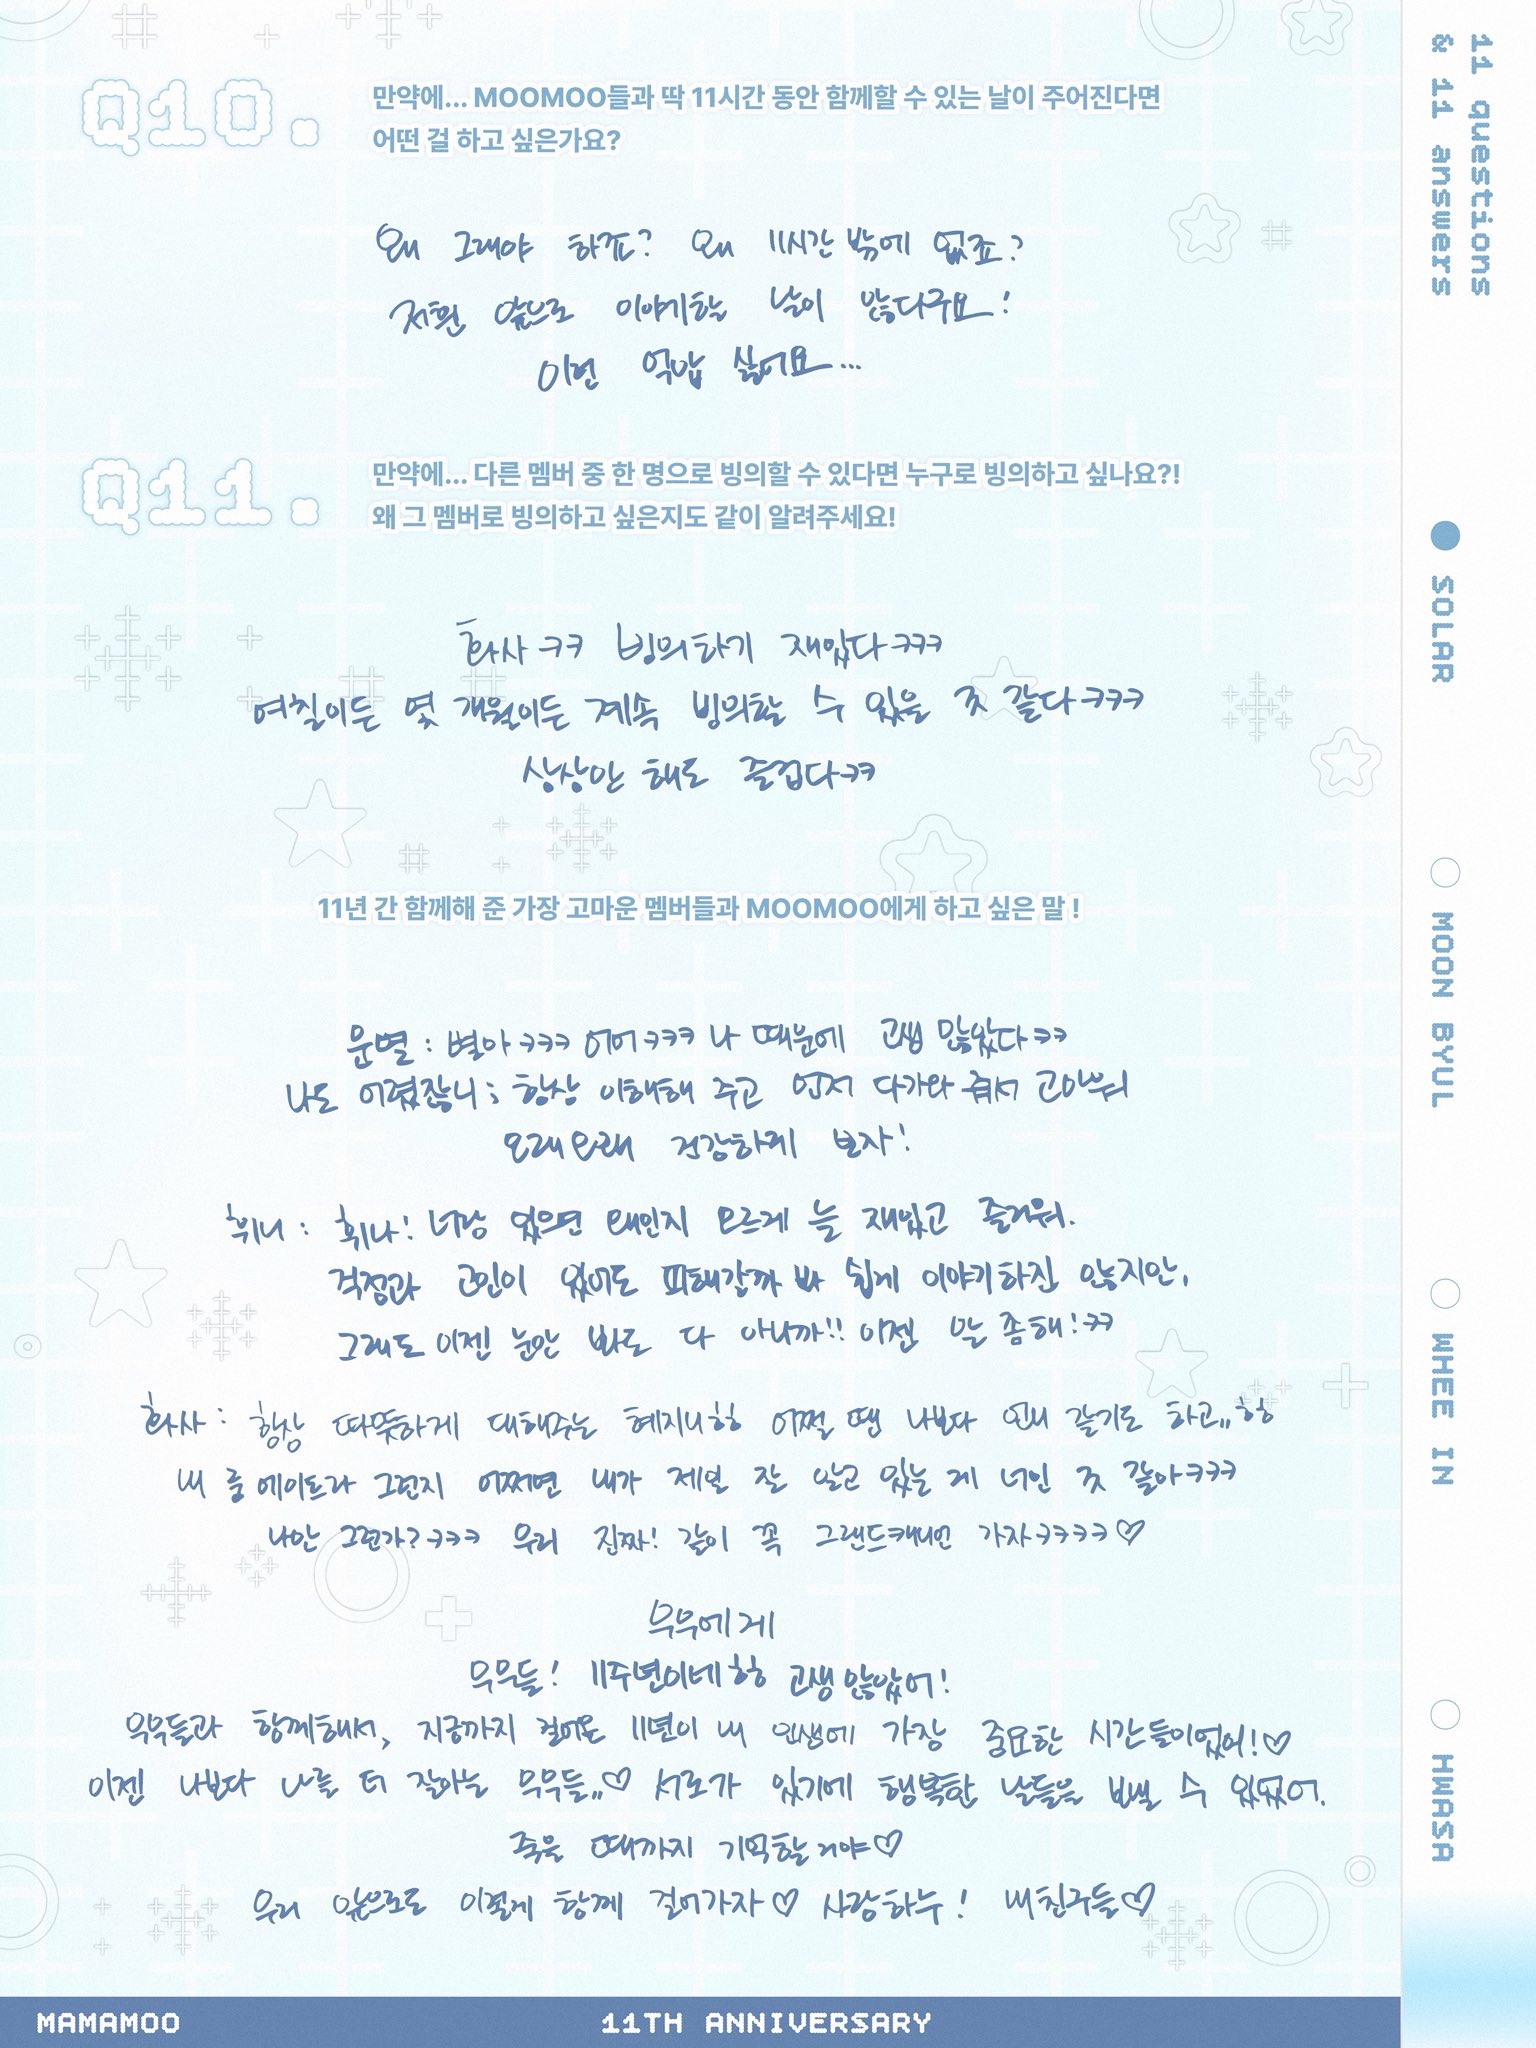 Q10.
만약에... MOOMOO들과 딱 11시간 동안 함께할 수 있는 날이 주어진다면
어떤 걸 하고 싶은가요?
왜 그래야 하죠? 왜 11시간 밖에 없죠?
저흰 앞으로 이야기할 날이 많다구요!
이런 억압 싫어요...
Q11.
만약에... 다른 멤버 중 한 명으로 빙의할 수 있다면 누구로 빙의하고 싶나요?!
왜 그 멤버로 빙의하고 싶은지도 같이 알려주세요!
화사ㅋㅋ 빙의하기 재밌다ㅋㅋㅋ
며칠이든 몇 개월이든 계속 빙의할 수 있을 것 같다ㅋㅋㅋ
상상만 해도 즐겁다ㅋㅋ
11년 간 함께해 준 가장 고마운 멤버들과 MOOMOO에게 하고 싶은 말 !
문별 : 별아ㅋㅋㅋ 어어ㅋㅋㅋ 나 때문에 고생 많았다ㅋㅋ
나도 어렸잖니; 항상 이해해 주고 먼저 다가와 줘서 고마워
오래오래 건강하게 보자!
휘니 : 휘나! 너랑 있으면 왜인지 모르게 늘 재밌고 즐거워.
걱정과 고민이 있어도 피해갈까 봐 쉽게 이야기하진 않지만,
그래도 이젠 눈만 봐도 다 아니까!! 이젠 말 좀 해!ㅋㅋ
화사 : 항상 따뜻하게 대해주는 혜지니ㅎㅎ 어쩔 땐 나보다 언니 같기도 하고,,ㅎㅎ
내 룸메이트라 그런지 어쩌면 내가 제일 잘 알고 있는 게 너인 것 같아ㅋㅋㅋ
나만 그런가?ㅋㅋㅋ 우리 진짜! 같이 꼭 그랜드캐니언 가자ㅋㅋㅋㅋ♡
무무에게
무무들! 11주년이네ㅎㅎ 고생 많았어!
무무들과 함께해서, 지금까지 걸어온 11년이 내 인생에 가장 중요한 시간들이었어!♡
이젠 나보다 나를 더 잘아는 무무들,,♡ 서로가 있기에 행복한 날들을 보낼 수 있었어.
죽을 때까지 기억할거야♡
우리 앞으로도 이렇게 함께 걸어가자♡ 사랑하누! 내 친구들♡
MAMAMOO
11TH ANNIVERSARY
11 questions
& 11 answers
SOLAR
MOON BYUL
WHEE IN
HWASA